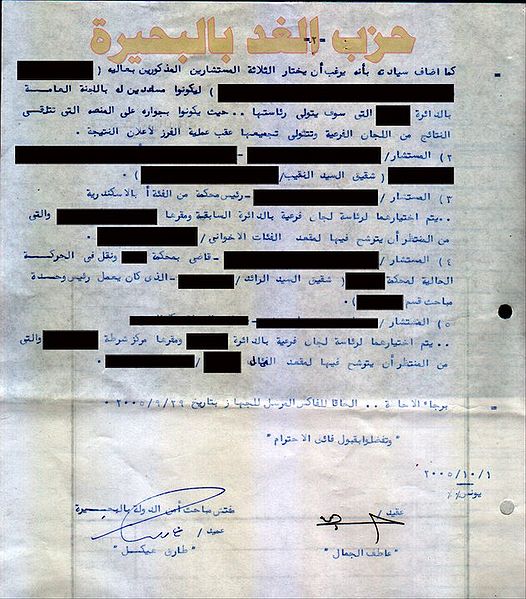 حزب الغد بالبحيرة
-٢-
- كما اضاف سيادته بأنه يرغب أن يختار الثلاثة المستشارين المذكورين بعاليه (
) ليكونوا مساعدين له باللجنة العامة
بالدائرة التى سوف يتولى رئاستها .. حيث يكونوا بجواره على المنصه التى تتلقى
النتائج من اللجان الفرعية وتتولى تجميعها عقب عملية الفرز لأعلان النتيجة .
٢) المستشار /
( شقيق السيد النقيب/ ) .
٣) المستشار / - رئيس محكمة من الفئة أ بالاسكندرية
.. يتم اختيارهما لرئاسة لجان فرعية بالدائرة السابقية ومقرها والتى
من المنتظر أن يترشح فيها لمقعد الفئات الاخوانى /
٤) المستشار / - قاضى بمحكمة ونقل فى الحركة
الحالية لمحكمة ( شقيق السيد الرائد/ - الذى كان يعمل رئيس وحدة
مباحث قسم ) .
٥) المستشار /
.. يتم اختيارهما لرئاسة لجان فرعية بالدائرة ومقرها مركز شرطة والتى
من المنتظر أن يترشح فيها لمقعد /
- برجاء الاحاطة .. الحاقا للفاكس المرسل للجهاز بتاريخ ٢٠٠٥/٩/٢٩ .
" وتفضلوا بقبول فائق الاحترام "
٢٠٠٥/١٠/١
مفتش مباحث أمن الدولة بالبحيرة
عقيد /
عميد /
" عاطف الجمال "
" طارق هيكل "